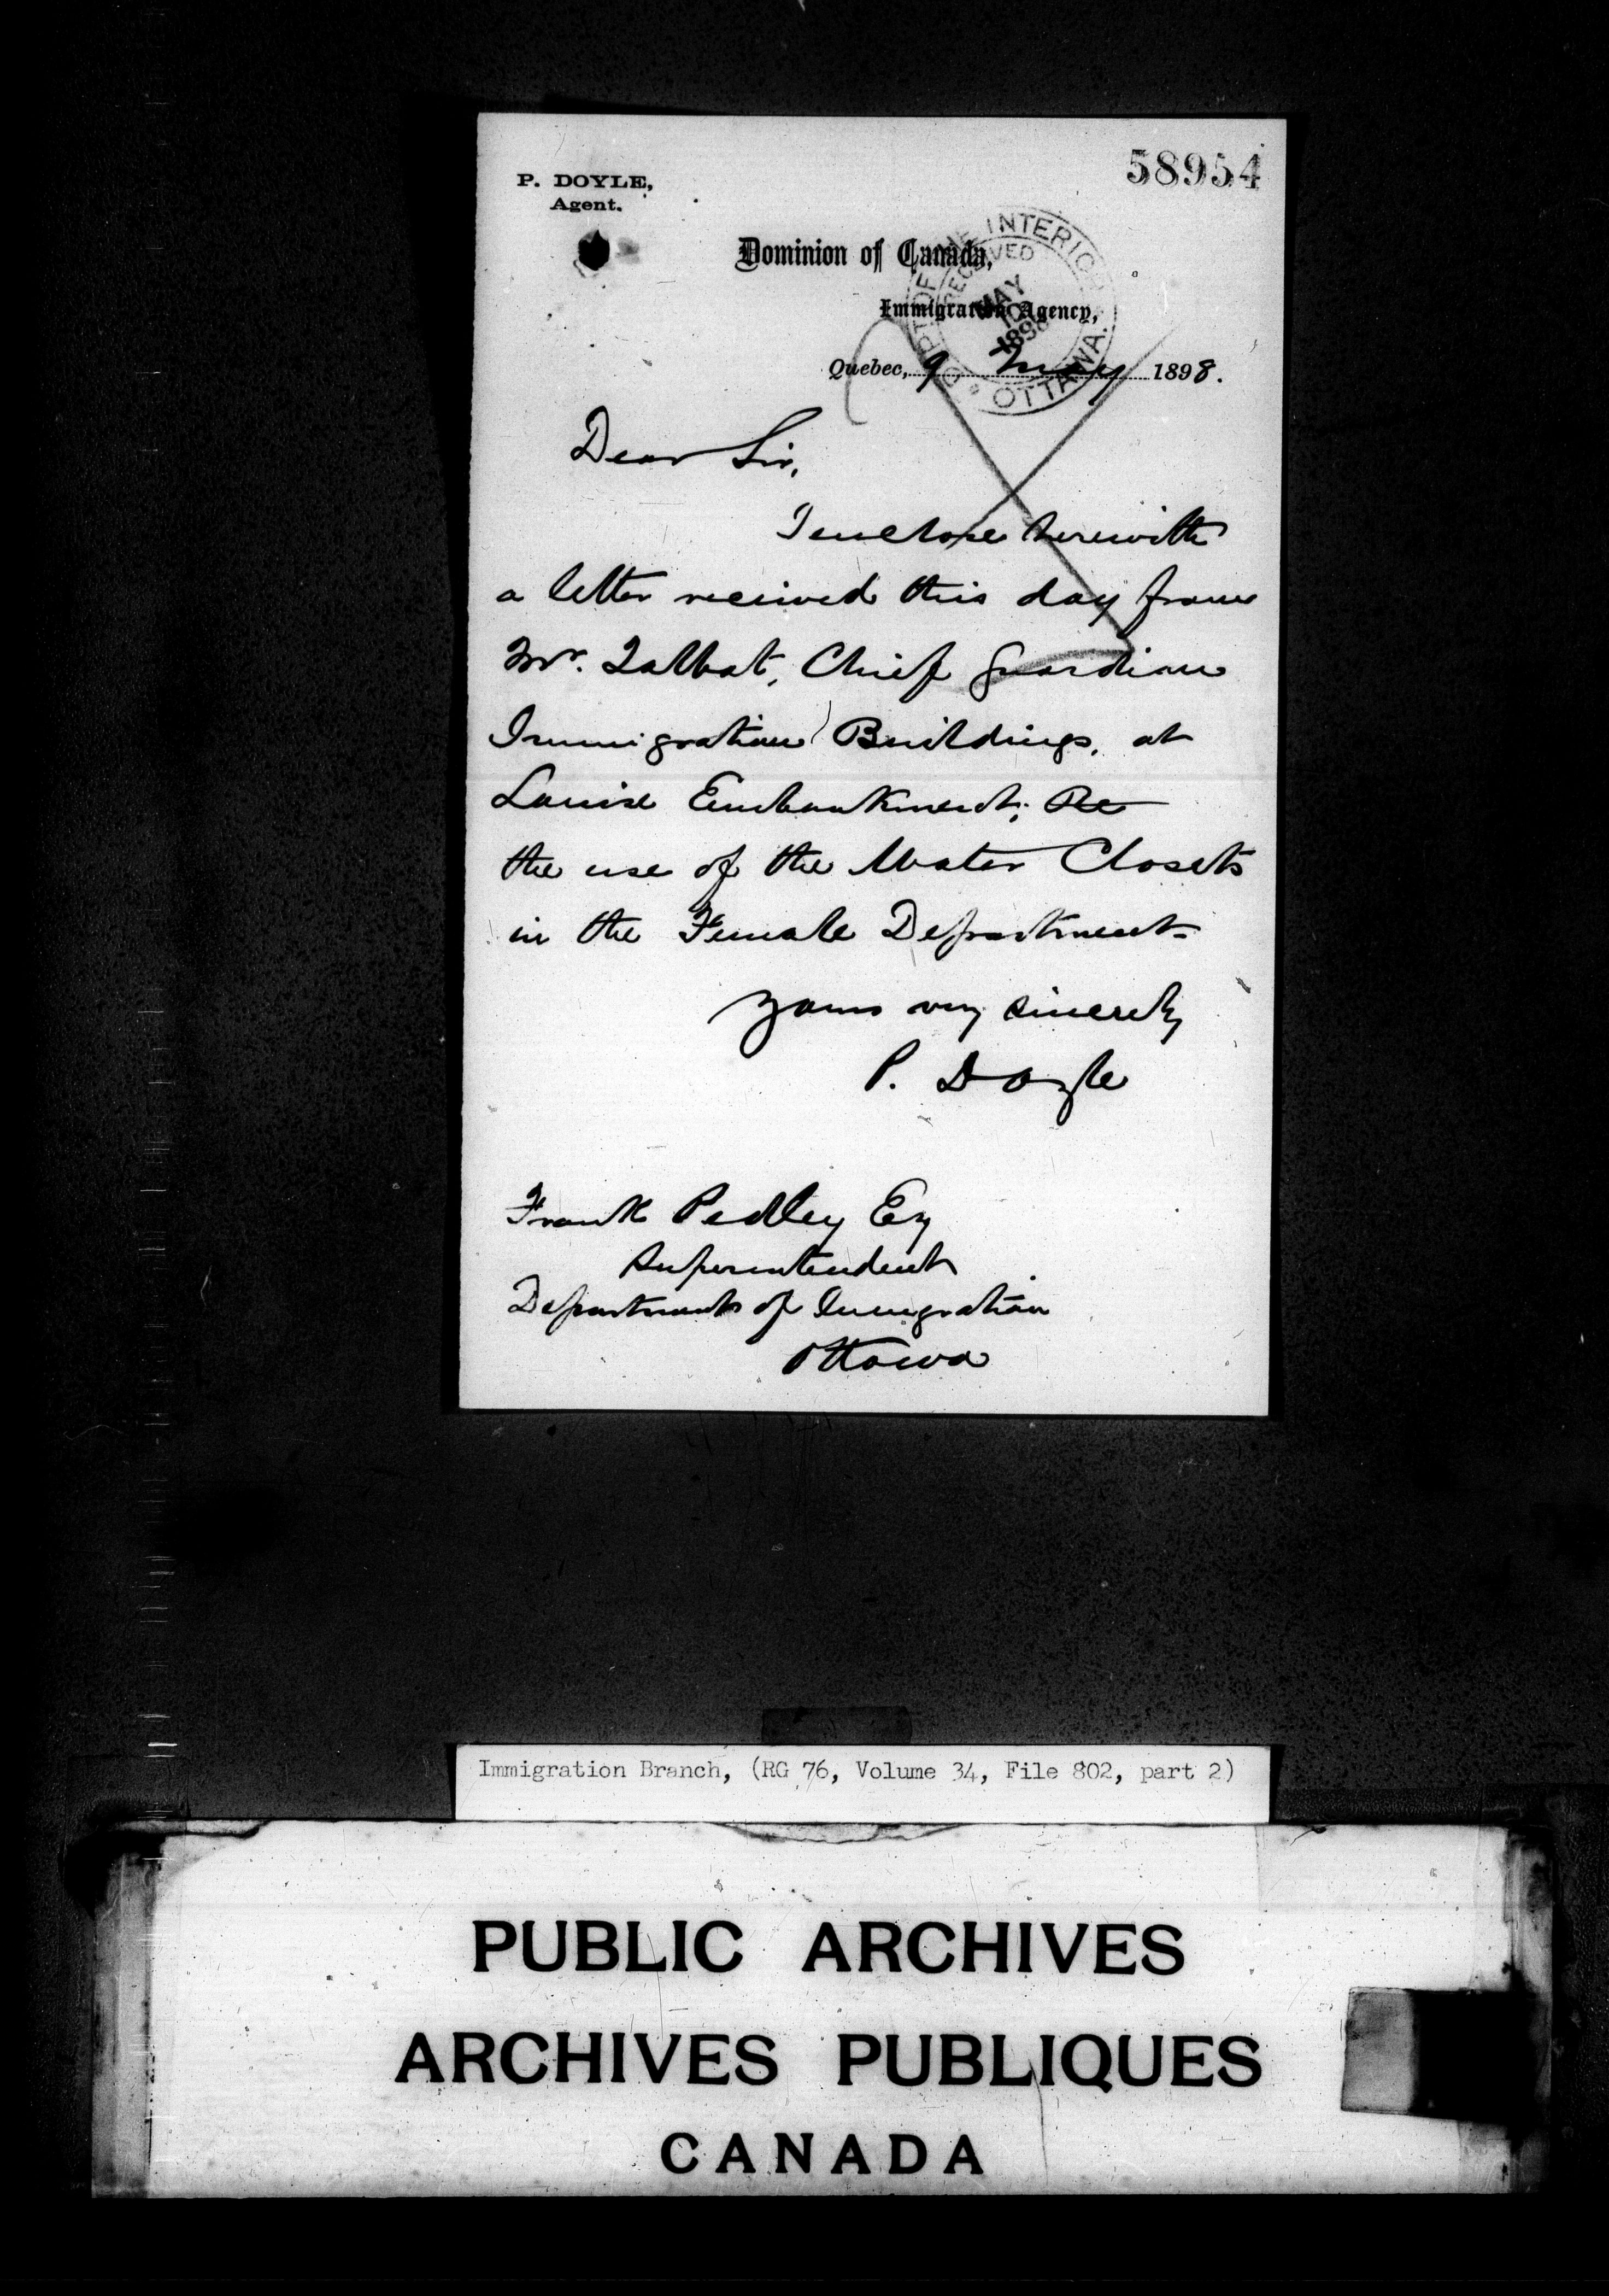 58954
P. DOYLE,
Agent.
Dominion of Canada,
Immigration Agency,
DEPT OF THE INTERIOR
RECEIVED
MAY
10
1898
OTTAWA.
Quebec, 9 May 1898.
Dear Sir,
I enclose herewith
a letter received this day from
Mr. Talbot, Chief Guardian
Immigration Buildings, at
Louise Embankment; Re
the use of the Water Closets
in the Female Department
Yours very sincerely
P. Doyle
Frank Pedley Esq
Superintendent
Department of Immigration
Ottawa
Immigration Branch, (RG 76, Volume 34, File 802, part 2)
PUBLIC ARCHIVES
ARCHIVES PUBLIQUES
CANADA